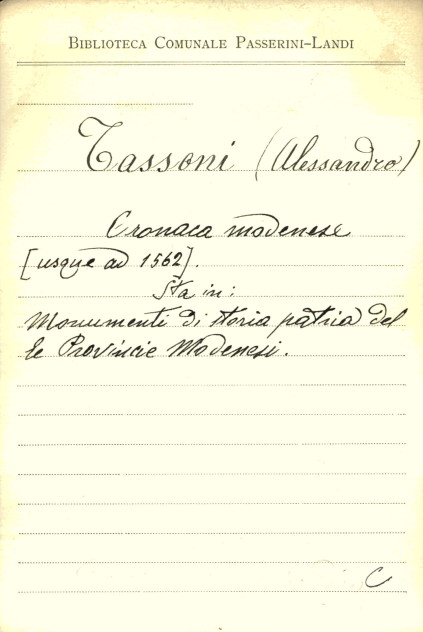 BIBLIOTECA COMUNALE PASSERINI-LANDI
Tassoni (Alessandro)
Cronaca modenese
[usque ad 1562].
Sta in:
Monumenti di storia patria del
le Provincie Modenesi.
C